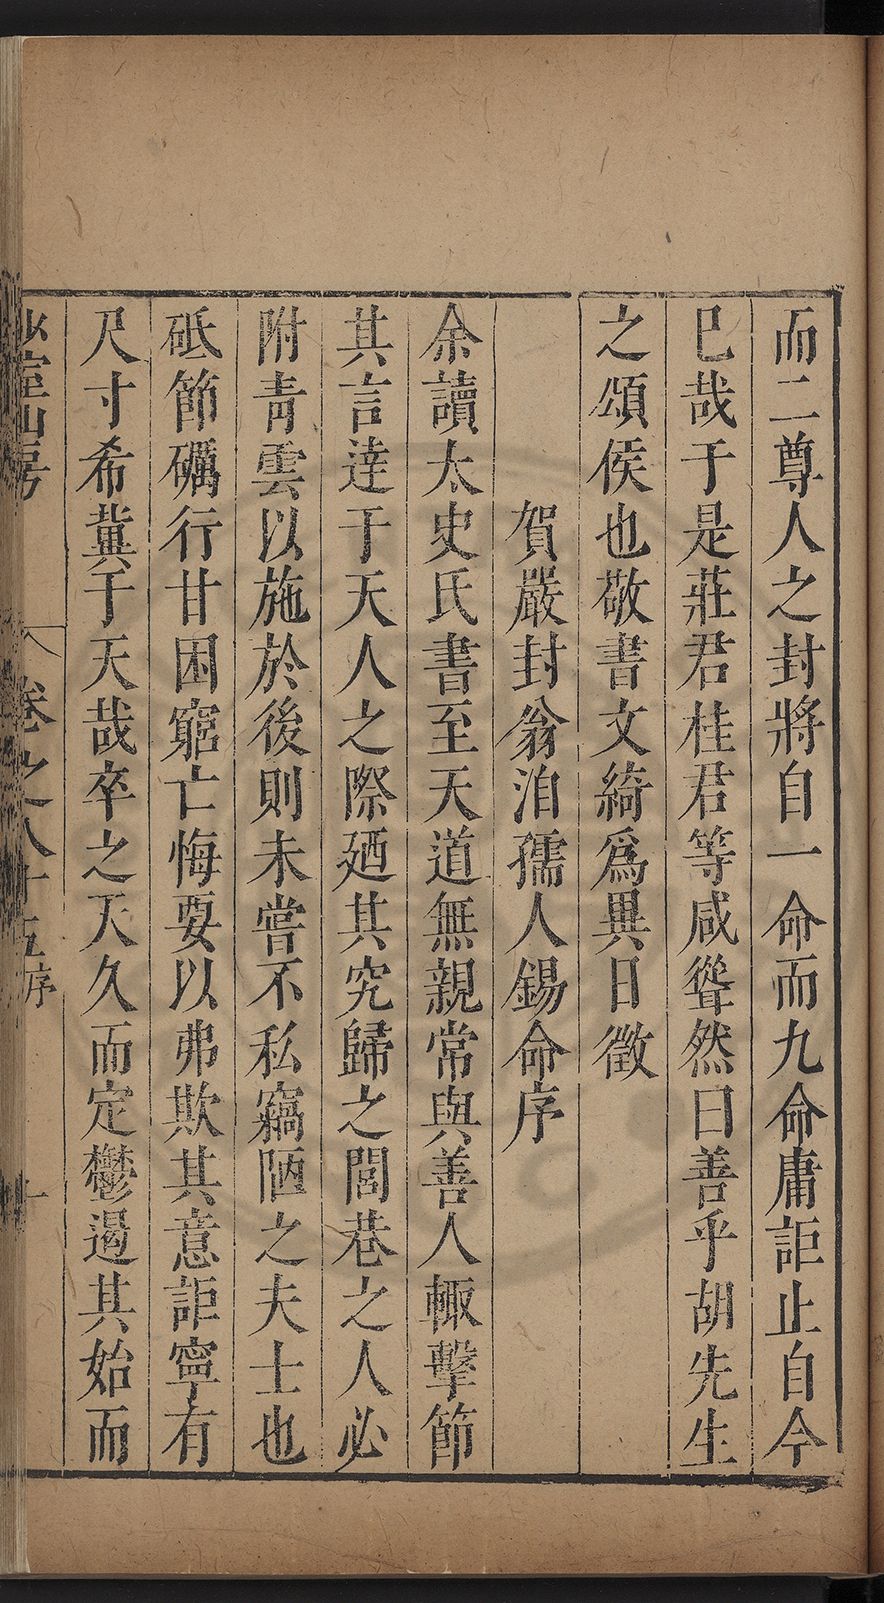 而二尊人之封將自一命而九命庸詎止自今
已哉于是莊君桂君等咸聳然曰善乎胡先生
之頌侯也敬書文綺爲異日徵
賀嚴封翁洎孺人錫命序
余讀太史氏書至天道無親常與善人輙擊節
其言達于天人之際廼其究歸之閭巷之人必
附青雲以施於後則未嘗不私竊陋之夫士也
砥節礪行甘困窮亡悔要以弗欺其意詎寧有
尺寸希冀于天哉卒之天久而定鬱遏其始而
少室山房 卷之八十五序 十